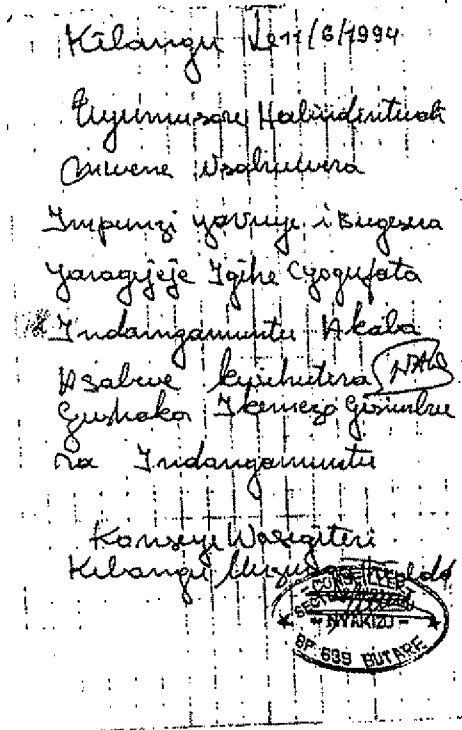 Kibangu le 11/6/1994
Uyumusore Habindintwali
Mwene Nsabuwera
Impunzi yavuye i Bugesera
yaragejeje Igihe Cyogufata
Indamgamuntu Akaba
Asabwe kwihutira
Gushaka Ikemezo Gisimbura
Indangamuntu
Konseye Wasegiteri
Kibangu
CONSEILLER
SECTEUR
- NYAKIZU -
BP 639 BUTARE